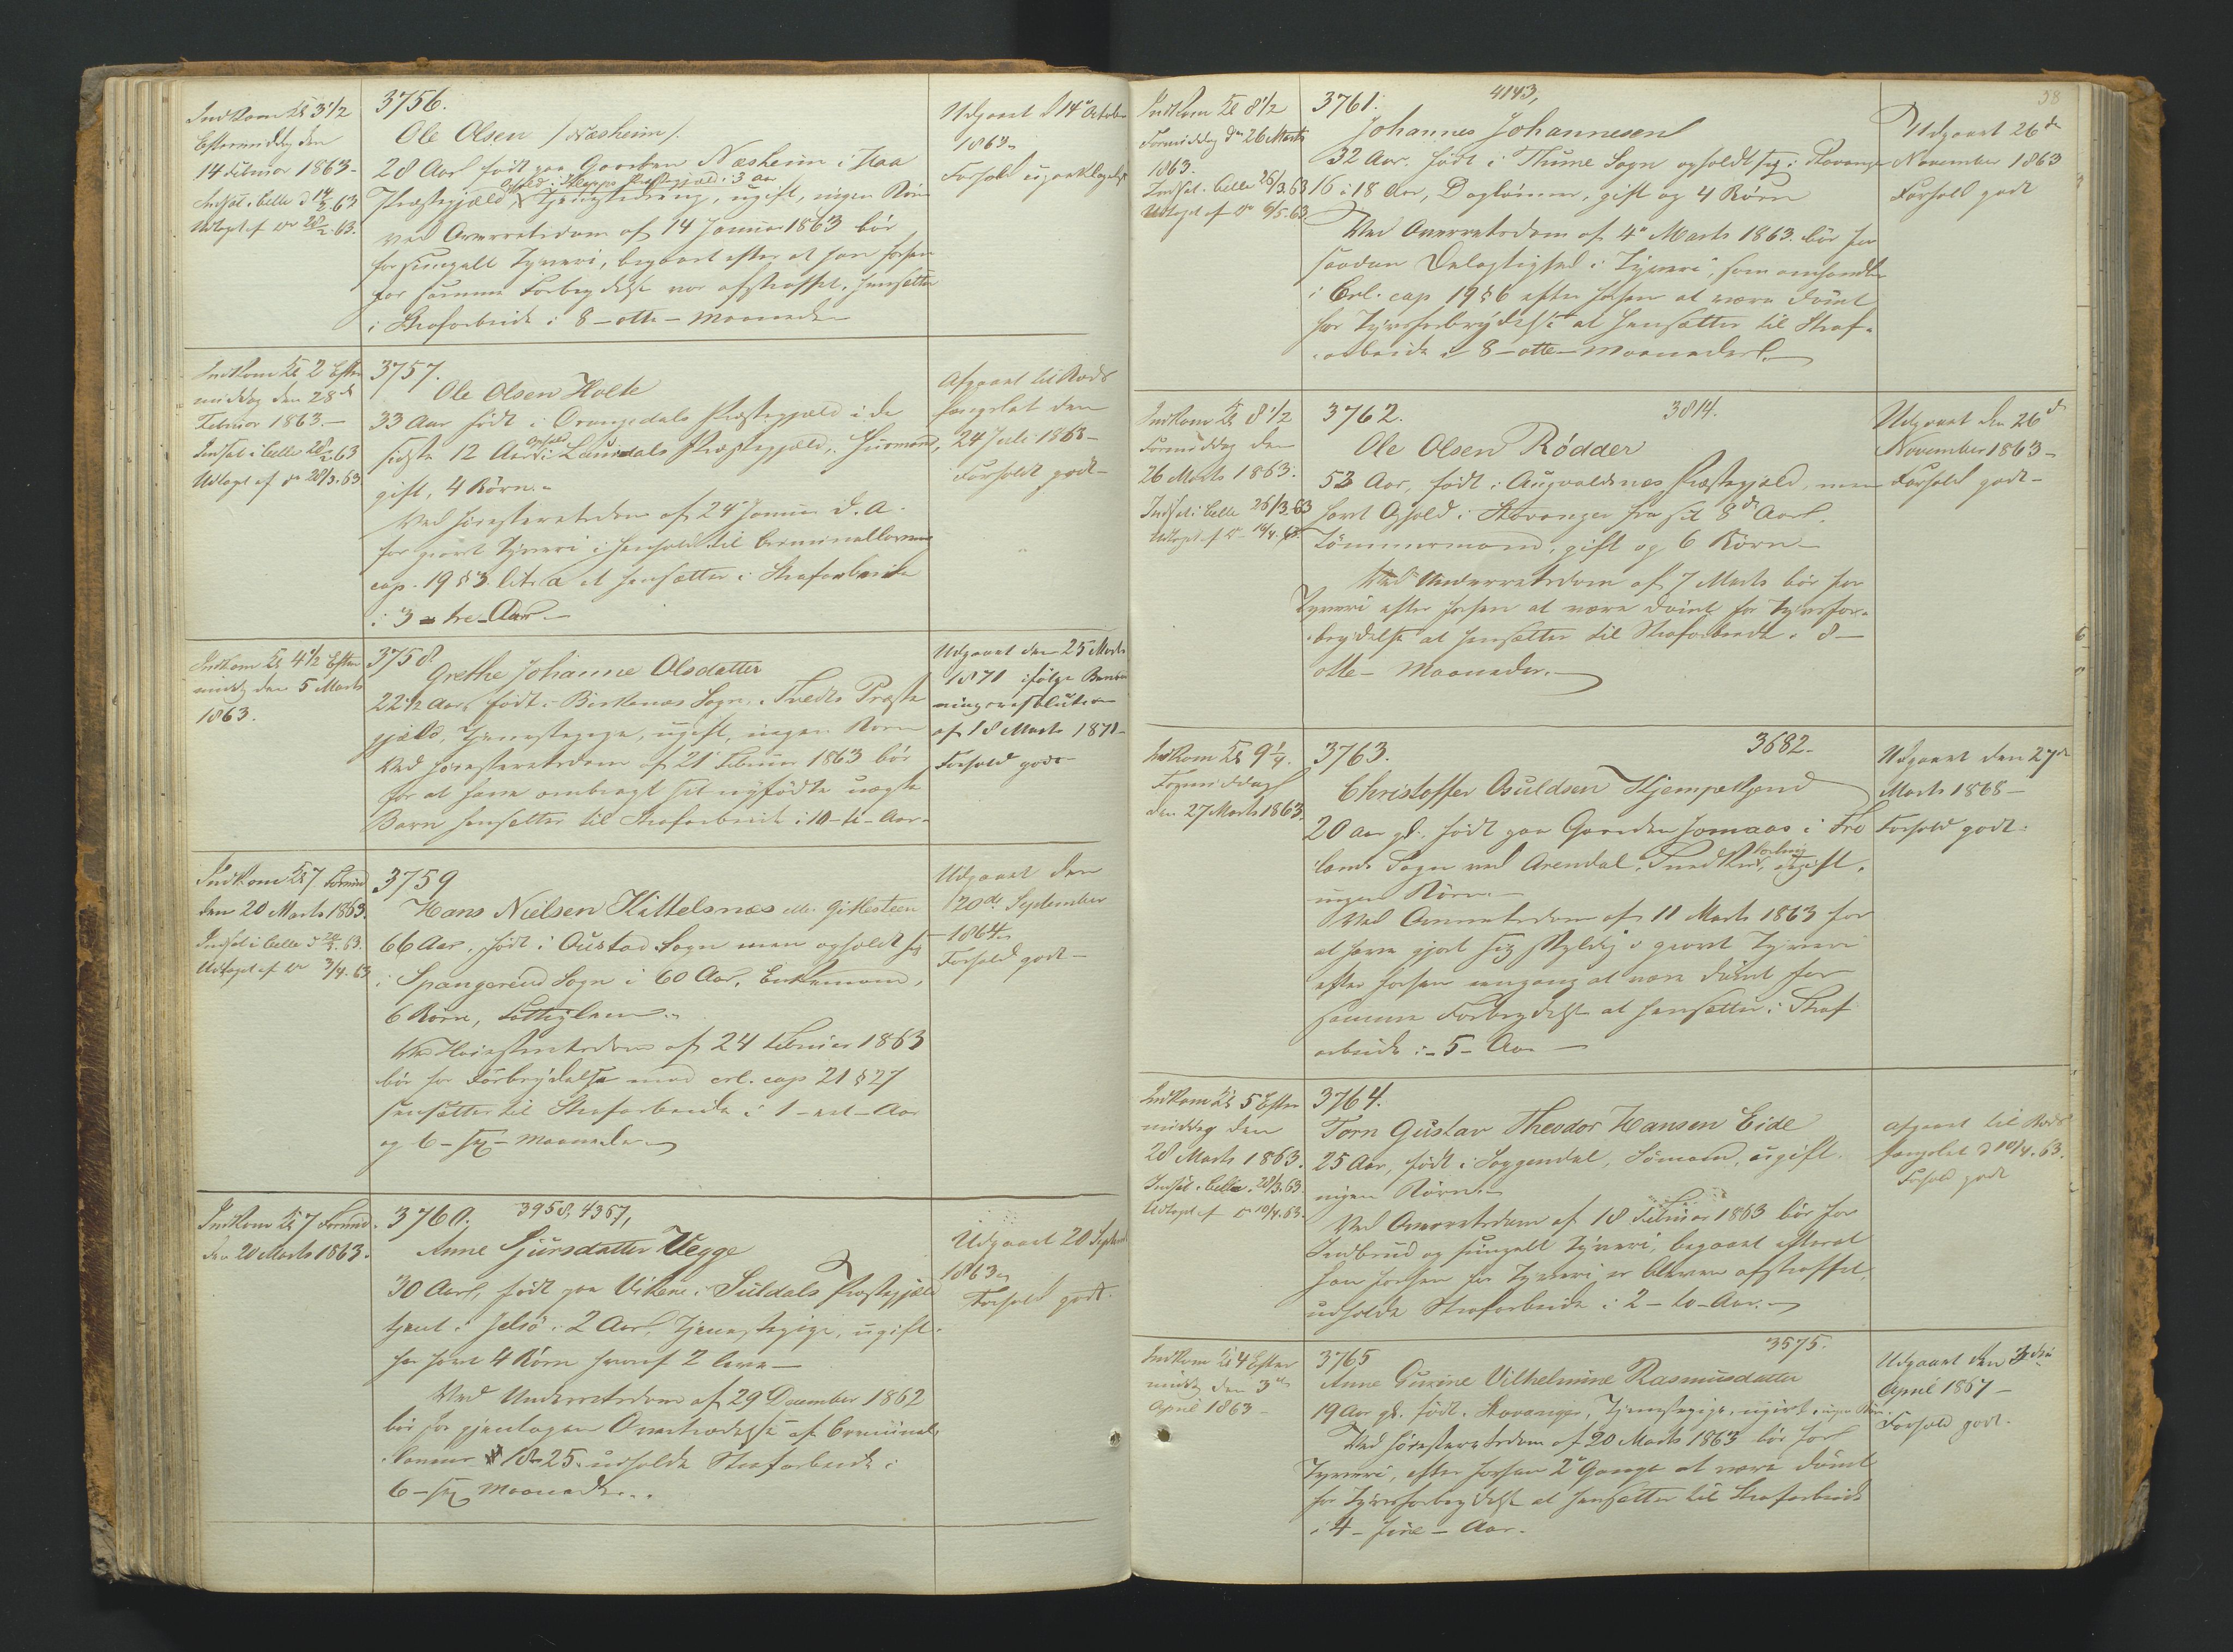 Indkom Kl 3 1/2
Eftermiddag den
14 Februar 1863-
Indsat i Celle d 14/2 63
Udtaget af do 28/2 63.
3756.
Ole Olsen /Næsheim/.
28 Aar født paa Gaarden Næsheim i Haa
Ophold i Klepps Præstegjæld i 3 Aar
Præstegjæld, Tjenestedreng, ugift, ingen Børn
ved Overretsdom af 14 Januar 1863 bør
for simpelt Tyveri, begaaet efter at han forhen
for samme Forbrydelse var afstraffet, hensættes
i Strafarbeide i 8 - otte - Maaneder
Udgaaet d 14 October
1863.
Forhold upaaklageligt
Indkom Kl 2 Efter
middag den 28d
Februar 1863.-
Indsat i Celle 28/2 63
Udtaget af do 28/3. 63
3757.
Ole Olsen Holte
33 Aar født i Drangedals Præstegjæld i de
sidste 12 Aar Ophold i Laurdals Præstegjæld, Husmand,
gift, 4 Børn.
Ved Høiesteretsdom af 24 Januar d. A.
for grovt Tyveri i Henhold til Criminallovens
cap. 19 § 3 litr a at hensættes i Strafarbeide
i 3 - tre - Aar.
Afgaaet til Bods
fængslet den
24 Juli 1863-
Forholdt godt-
Indkom Kl 4 1/2 Efter
middg den 5 Marts
1863.
3758.
Grethe Johanne Olsdatter
22 1/2 Aar, født i Birkenæs Sogn, Tvedts Præste
gjæld, Tjenestepige, ugift, ingen Børn
Ved Høiesteretsdom af 21 Februar 1863 bør
for at have ombragt sit nyfødte uægte
Barn hensættes til Strafarbeide i 10 - ti - Aar.
Udgaaet den 25 Marts
1871 ifølge Benaad
ningsresolution
af 18 Marts 1871-
Forhold godt
Indkom Kl 7 Formd
den 20 Marts 1863.
Indsat i Celle d 20/3. 63.
Udtaget af do 3/4. 63
3759
Hans Nielsen Kittelsnæs eller Gitlesteen
66 Aar, født i Oustad Sogn men opholdt sig
i Spangereid Sogn i 60 Aar, Enkemand,
6 Børn, Fattiglem.
Ved Høiesteretsdom af 24 Februar 1863
bør for Forbrydelse mod crl. cap 21 § 27
hensættes til Strafarbeide i 1 - et - Aar
og 6 - sex - Maaneder
Udgaaet den
20de September
1864.
Forhold godt-
Indkom Kl 7 Formd.
den 20 Marts 1863.
3760. 3958, 4367,
Anne Sjursdatter Vegge
30 Aar, født paa Vikene i Suldals Præstegjæld
tjent i Jelsø i 2 Aar, Tjenestepige, ugift.
har havt 4 Børn hvoraf 2 leve-
Ved Underretsdom af 29 December 1862
bør for gjentagen Overtrædelse af Criminal
lovens 18-25. udholde Strafarbeide i
6 - sex Maaneder.
Udgaaet 20 Septem
1863.
Forhold godt.
38
Indkom Kl 8 1/2
Formiddag dn 26 Marts
1863.
Indsat i Celle 26/3 63
Udtaget af do 6/5. 63.
3761. 4143,
Johannes Johannesen
32 Aar, født i Thime Sogn opholdt sig i Stavanger
16 à 18 Aar, Daglønner, gift og 4 Børn
Ved Overretsdom af 4de Marts 1863. bør for
saadan Delagtighed i Tyveri, som omhandles
i Crl. cap 19 § 6 efter forhen at være dømt
for Tyvsforbrydelse at hensættes til Straf-
arbeide i 8 - otte - Maaneder.
Udgaaet 26de
November 1863
Forhold godt
Indkom Kl 8 1/2
Formiddag den
26 Marts 1863.
Indsat i Celle 26/3 63
Udtaget af do 16/4. 63.
3762. 3814.
Ole Olsen Rødder
53 Aar, født i Augvaldsnæs Præstegjæld, men
havt Ophold i Stavanger fra sit 8de Aar,
Tømmermand, gift og 6 Børn-
Ved Underretsdom af 7 Marts bør for
Tyveri efter forhen at være dømt for Tyvsfor-
brydelse at hensættes til Strafarbeide i 8-
otte - Maaneder.
Udgaaet den 26d
November 1863-
Forhold godt-
Indkom Kl 9 1/4.
Formiddag
den 27 Marts 1863.
3763. 3682.
Christoffer Osuldsen Kjempekjend
20 Aar gl. født paa Gaarden Jomaas i Fro
lands Sogn ved Arendal, Snedker, ugift,
ingen Børn.
Ved Overretsdom af 11 Marts 1863 for
at have gjort sig skyldig i grovt Tyveri
efter forhen engang at være dømt for
samme Forbrydelse at hensættes i Straf
arbeide i - 5 - Aar
Udgaaet den 27de
Marts 1868-
Forhold godt.
Indkom Kl 5 Efter
middag den
28 Marts 1863.
Indsat i Celle 28/3. 63.
Udtaget af do 10/4. 63.
3764.
Torn Gustav Theodor Hansen Eide
25 Aar, født i Soggendal, Sømand, ugift
ingen Børn.
Ved Overretsdom af 18 Februar 1863 bør for
Indbrud og simpelt Tyveri, begaaet efterat
han forhen for Tyveri er bleven afstraffet,
udholde Strafarbeide i 2 - to - Aar.
Afgaaet til Bods
fængslet d 10/4. 63.
Forhold godt
Indkom Kl 4 Efter
middg den 3de
April 1863-
3765 3575.
Anne Gurine Vilhelmine Rasmusdatter
19 Aar gl. født i Stavanger, Tjenestepige, ugivt, ingen Børn.
Ved Høiesteretsdom af 20 Marts 1863 bør for
Tyveri, efter forhen 2de Gange at være dømt
for Tyvsforbrydelse at hensættes til Strafarbeide
i 4 - fire - Aar.
Udgaaet den 3die
April 1867-
Forhold godt.